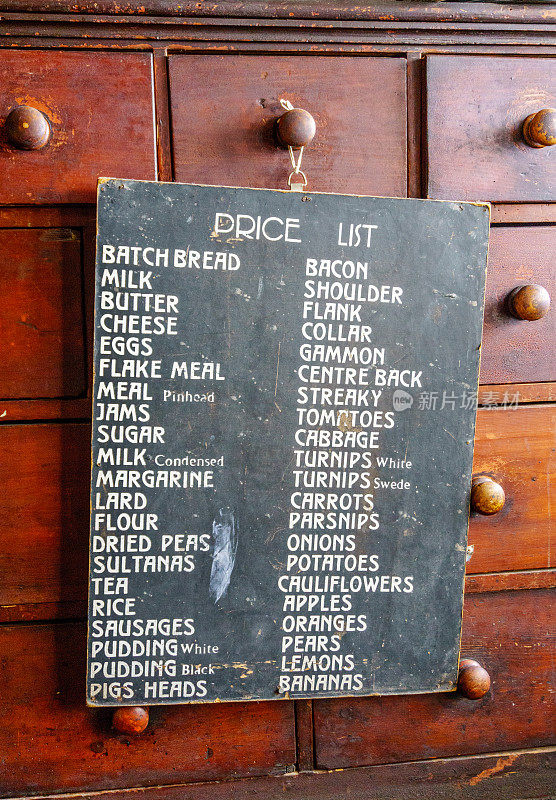 PRICE LIST
BATCH BREAD
MILK
BUTTER
CHEESE
EGGS
FLAKE MEAL
MEAL Pinhead
JAMS
SUGAR
MILK Condensed
MARGARINE
LARD
FLOUR
DRIED PEAS
SULTANAS
TEA
RICE
SAUSAGES
PUDDING White
PUDDING Black
PIGS HEADS
BACON
SHOULDER
FLANK
COLLAR
GAMMON
CENTRE BACK
STREAKY
TOMATOES
CABBAGE
TURNIPS White
TURNIPS Swede
CARROTS
PARSNIPS
ONIONS
POTATOES
CAULIFLOWERS
APPLES
ORANGES
PEARS
LEMONS
BANANAS
新片场素材